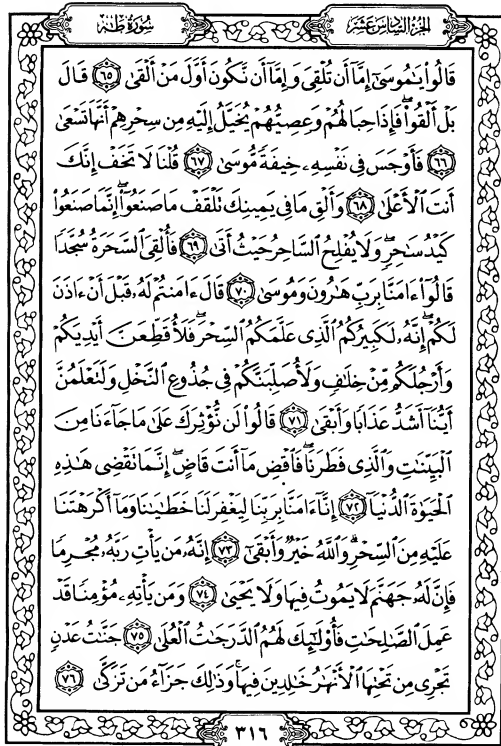 سُورَةُ طه
الجُزْءُ السَّادِسَ عَشَرَ
قَالُوا۟ يَـٰمُوسَىٰٓ إِمَّآ أَن تُلْقِىَ وَإِمَّآ أَن نَّكُونَ أَوَّلَ مَنْ أَلْقَىٰ ٦٥ قَالَ
بَلْ أَلْقُوا۟ۖ فَإِذَا حِبَالُهُمْ وَعِصِيُّهُمْ يُخَيَّلُ إِلَيْهِ مِن سِحْرِهِمْ أَنَّهَا تَسْعَىٰ
٦٦ فَأَوْجَسَ فِى نَفْسِهِۦ خِيفَةً مُّوسَىٰ ٦٧ قُلْنَا لَا تَخَفْ إِنَّكَ
أَنتَ ٱلْأَعْلَىٰ ٦٨ وَأَلْقِ مَا فِى يَمِينِكَ تَلْقَفْ مَا صَنَعُوٓا۟ۖ إِنَّمَا صَنَعُوا۟
كَيْدُ سَـٰحِرٍۖ وَلَا يُفْلِحُ ٱلسَّاحِرُ حَيْثُ أَتَىٰ ٦٩ فَأُلْقِىَ ٱلسَّحَرَةُ سُجَّدًا
قَالُوٓا۟ ءَامَنَّا بِرَبِّ هَـٰرُونَ وَمُوسَىٰ ٧٠ قَالَ ءَامَنتُمْ لَهُۥ قَبْلَ أَنْ ءَاذَنَ
لَكُمْۖ إِنَّهُۥ لَكَبِيرُكُمُ ٱلَّذِى عَلَّمَكُمُ ٱلسِّحْرَۖ فَلَأُقَطِّعَنَّ أَيْدِيَكُمْ
وَأَرْجُلَكُم مِّنْ خِلَـٰفٍ وَلَأُصَلِّبَنَّكُمْ فِى جُذُوعِ ٱلنَّخْلِ وَلَتَعْلَمُنَّ
أَيُّنَآ أَشَدُّ عَذَابًا وَأَبْقَىٰ ٧١ قَالُوا۟ لَن نُّؤْثِرَكَ عَلَىٰ مَا جَآءَنَا مِنَ
ٱلْبَيِّنَـٰتِ وَٱلَّذِى فَطَرَنَاۖ فَٱقْضِ مَآ أَنتَ قَاضٍۖ إِنَّمَا تَقْضِى هَـٰذِهِ
ٱلْحَيَوٰةَ ٱلدُّنْيَآ ٧٢ إِنَّآ ءَامَنَّا بِرَبِّنَا لِيَغْفِرَ لَنَا خَطَـٰيَـٰنَا وَمَآ أَكْرَهْتَنَا
عَلَيْهِ مِنَ ٱلسِّحْرِۗ وَٱللَّهُ خَيْرٌ وَأَبْقَىٰٓ ٧٣ إِنَّهُۥ مَن يَأْتِ رَبَّهُۥ مُجْرِمًا
فَإِنَّ لَهُۥ جَهَنَّمَ لَا يَمُوتُ فِيهَا وَلَا يَحْيَىٰ ٧٤ وَمَن يَأْتِهِۦ مُؤْمِنًا قَدْ
عَمِلَ ٱلصَّـٰلِحَـٰتِ فَأُو۟لَـٰٓئِكَ لَهُمُ ٱلدَّرَجَـٰتُ ٱلْعُلَىٰ ٧٥ جَنَّـٰتُ عَدْنٍ
تَجْرِى مِن تَحْتِهَا ٱلْأَنْهَـٰرُ خَـٰلِدِينَ فِيهَاۚ وَذَٰلِكَ جَزَآءُ مَن تَزَكَّىٰ ٧٦
٣١٦